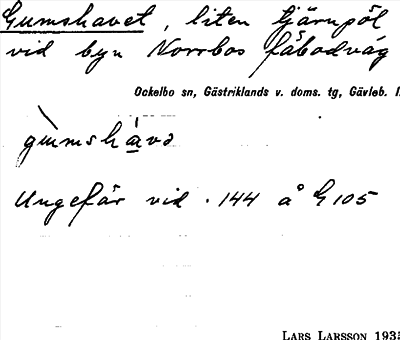 Gumshavet, liten tjärnpöl
vid byn Norrbos fäbodväg
Ockelbo sn, Gästriklands v. doms. tg, Gävleb.
gùmsháva
Ungefär vid 144 å G 105
LARS LARSSON 193